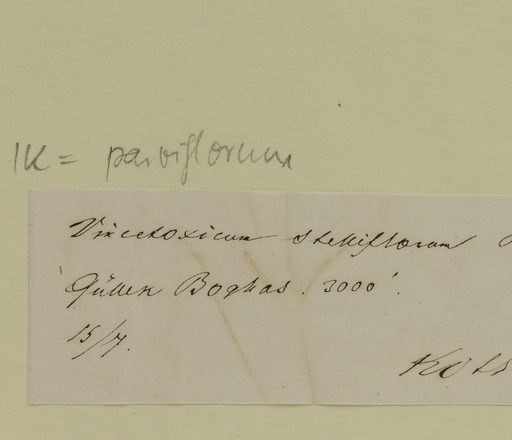 IK = parviflorum
Vincetoxicum stelliflorum
Güllek Boghas. 3000'.
15/7.
Kots